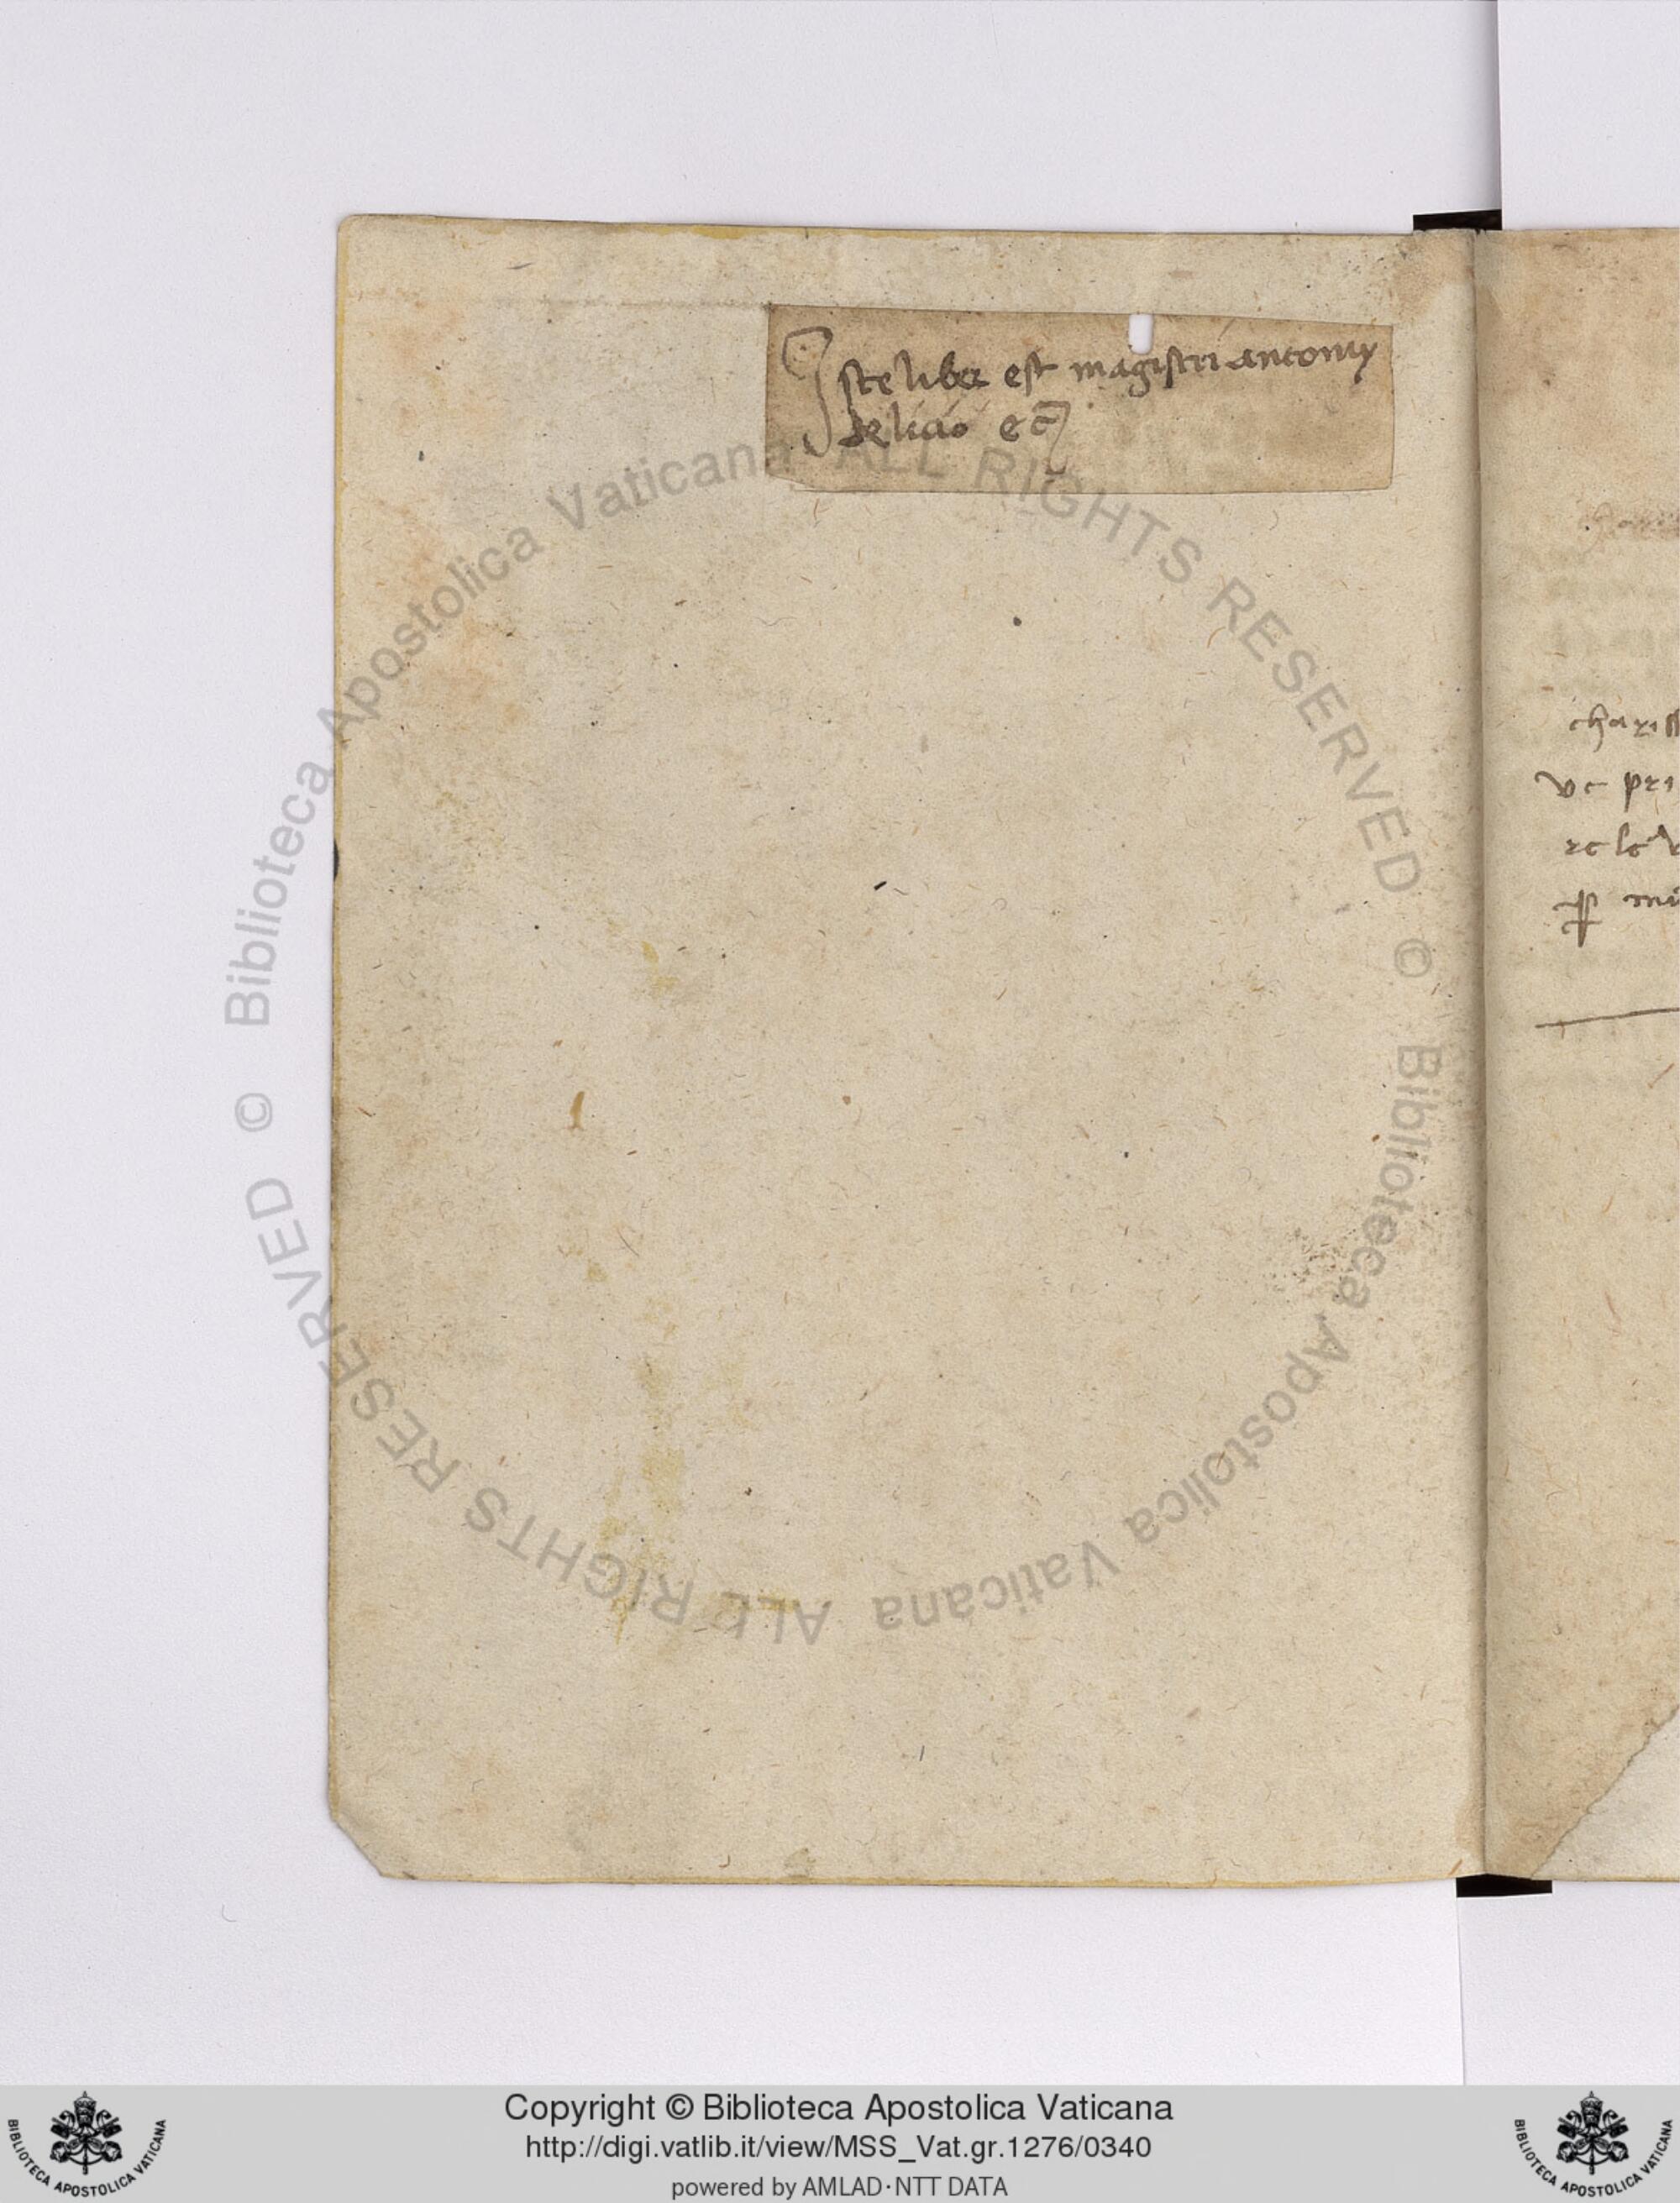 Iste liber est magistri antonij
de licio etc̄
charis
ve pri
re le v
ꝑ mi
© Biblioteca Apostolica Vaticana ALL RIGHTS RESERVED © Biblioteca Apostolica Vaticana ALL RIGHTS RESERVED
Copyright © Biblioteca Apostolica Vaticana
http://digi.vatlib.it/view/MSS_Vat.gr.1276/0340
powered by AMLAD·NTT DATA
BIBLIOTECA APOSTOLICA VATICANA
BIBLIOTECA APOSTOLICA VATICANA